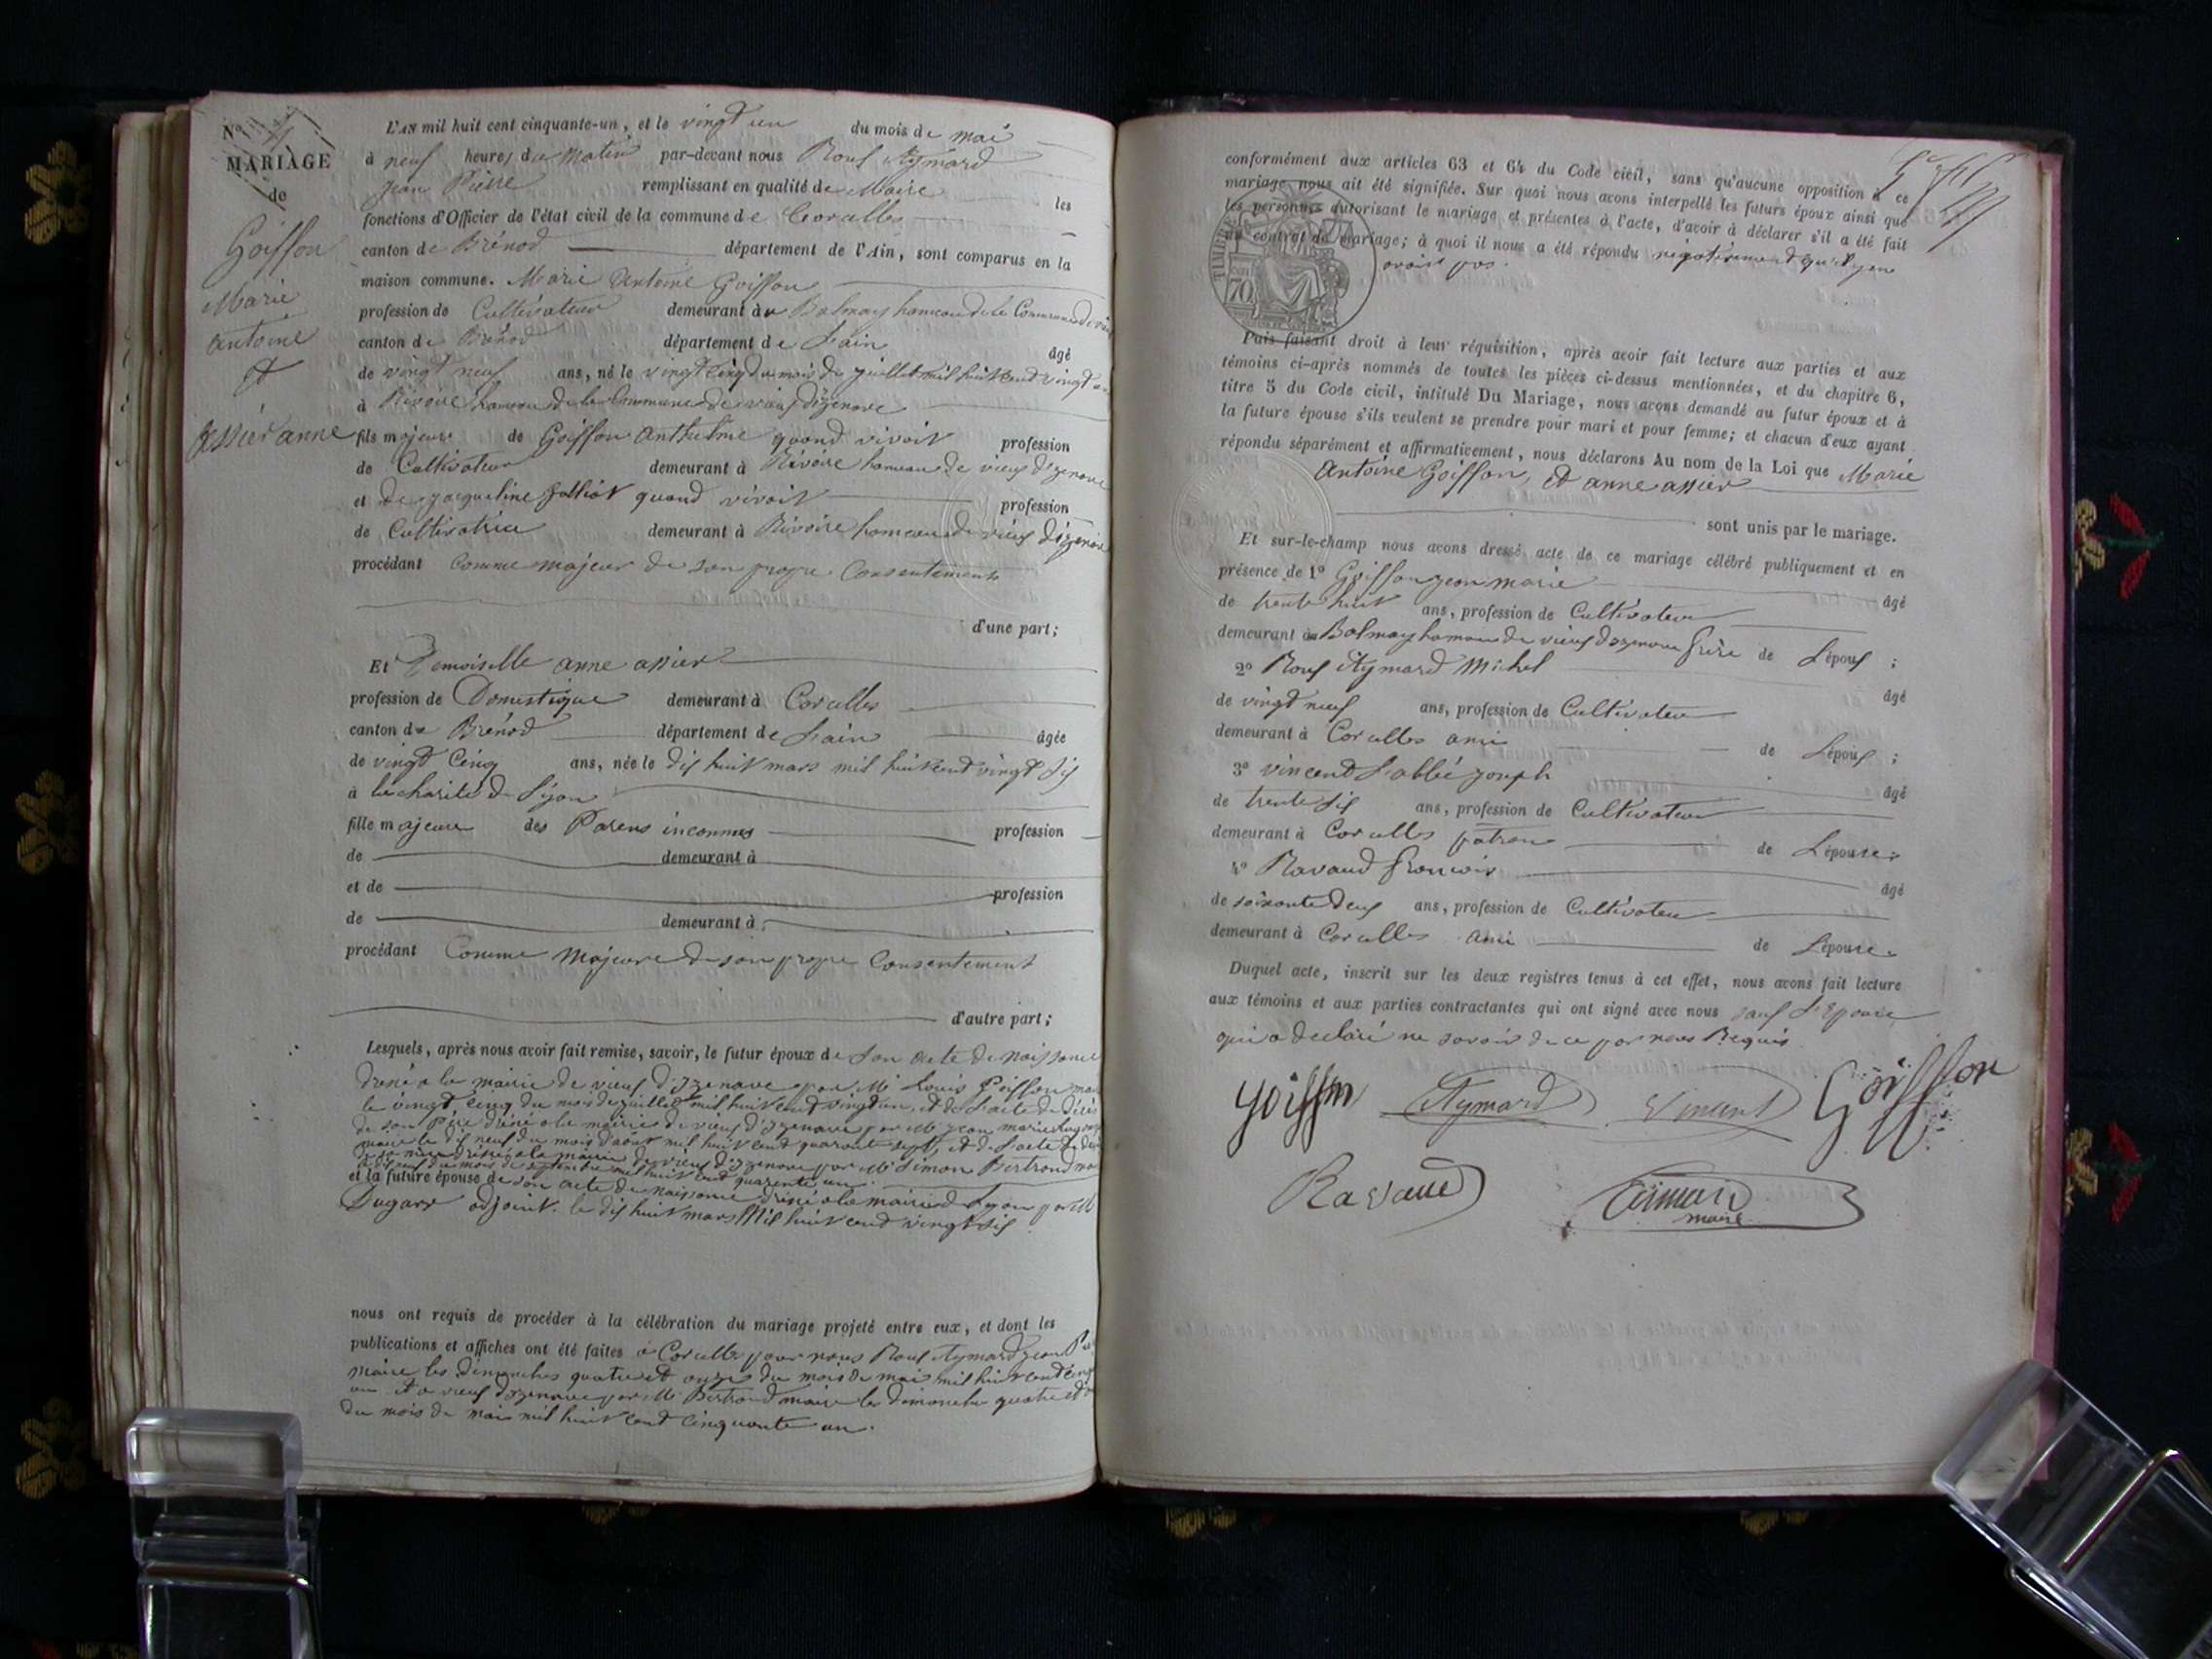 N.o 4
MARIAGE
de
Goiffon
Marie
antoine
et
assier anne
L'AN mil huit cent cinquante-un, et le vingt un du mois de mai
à neuf heures du matin par-devant nous Rouf Aymard
jean Pierre remplissant en qualité de Maire les
fonctions d'Officier de l'état civil de la commune de Corcelles
canton de Brénod département de l'Ain, sont comparus en la
maison commune. Marie Antoine Goiffon
profession de Cultivateur demeurant à Balmay hameau de la Commune de
canton de Brénod département de L'ain âgé
de vingt neuf ans, né le vingt cinq du mois de juillet mil huit cent vingt un
à Rivoire hameau de la Commune de vieux d'izenave
fils majeur de Goiffon Anthelme quand vivoit profession
de Cultivateur demeurant à Rivoire hameau de vieux d'izenave
et de jacqueline quand vivoit profession
de Cultivatrice demeurant à Rivoire hameau de vieux d'izenave
procédant Comme majeur de son propre Consentement
d'une part;
Et Demoiselle anne assier
profession de Domestique demeurant à Corcelles
canton de Brénod département de L'ain âgée
de vingt Cinq ans, née le dix huit mars mil huit cent vingt six
à la charité de Lyon
fille majeure des Parens inconnus profession
de demeurant à
et de profession
de demeurant à
procédant Comme Majeure de son propre Consentement
d'autre part;
Lesquels, après nous avoir fait remise, savoir, le futur époux de Son acte de naissance
dressé a la mairie de vieux d'Izenave par Mr Louis Goiffon
le vingt cinq du mois de juillet mil huit cent vingt un, et de L'acte de décès
de son Père dréssé a la mairie de vieux d'izenave par Mr jean marie
maire le dix neuf du mois d'août mil huit cent quarante sept, et de L'acte de décès
de sa mère dressé a la mairie de vieux d'izenave par Mr Simon Bertrand
du mois de septembre mil huit cent quarente un
et la future épouse de son acte de naissance dressé a la mairie de Lyon par Mr
Dugare adjoint le dix huit mars Mil huit cent vingt six
nous ont requis de procéder à la célébration du mariage projeté entre eux, et dont les
publications et affiches ont été faites à Corcelles par nous Rouf Aymard jean
maire les dimanches quatre et onze du mois de mai mil huit cent
un et a vieux d'izenave par Mr Bertrand maire les dimanches quatre et
du mois de mai mil huit cent cinquante un.
conformément aux articles 63 et 64 du Code civil, sans qu'aucune opposition à ce
mariage nous ait été signifiée. Sur quoi nous avons interpellé les futurs époux ainsi que
les personnes autorisant le mariage et présentes à l'acte, d'avoir à déclarer s'il a été fait
un contrat de mariage; à quoi il nous a été répondu négativement qu'il y en
avoit pas.
TIMBRE
70
Puis faisant droit à leur réquisition, après avoir fait lecture aux parties et aux
témoins ci-après nommés de toutes les pièces ci-dessus mentionnées, et du chapitre 6,
titre 5 du Code civil, intitulé Du Mariage, nous avons demandé au futur époux et à
la future épouse s'ils veulent se prendre pour mari et pour femme; et chacun d'eux ayant
répondu séparément et affirmativement, nous déclarons Au nom de la Loi que Marie
Antoine Goiffon, et anne assier
sont unis par le mariage.
Et sur-le-champ nous avons dressé acte de ce mariage célébré publiquement et en
présence de 1º Goiffon jean marie âgé
de trente huit ans, profession de Cultivateur
demeurant au Balmay hameau de vieux d'izenave frère de L'époux ;
2º Rouf Aymard Michel âgé
de vingt neuf ans, profession de Cultivateur
demeurant à Corcelles ami de L'époux ;
3º vincent Labbé joseph âgé
de trente six ans, profession de Cultivateur
demeurant à Corcelles patron de L'épouse ;
4º Ravaud françois âgé
de soixante deux ans, profession de Cultivateur
demeurant à Corcelles ami de L'épouse.
Duquel acte, inscrit sur les deux registres tenus à cet effet, nous avons fait lecture
aux témoins et aux parties contractantes qui ont signé avec nous sauf L'Epouse
qui a déclaré ne savoir de ce par nous Requis
Goiffon Aymard Vincent Goiffon
Ravaud Aimard
maire